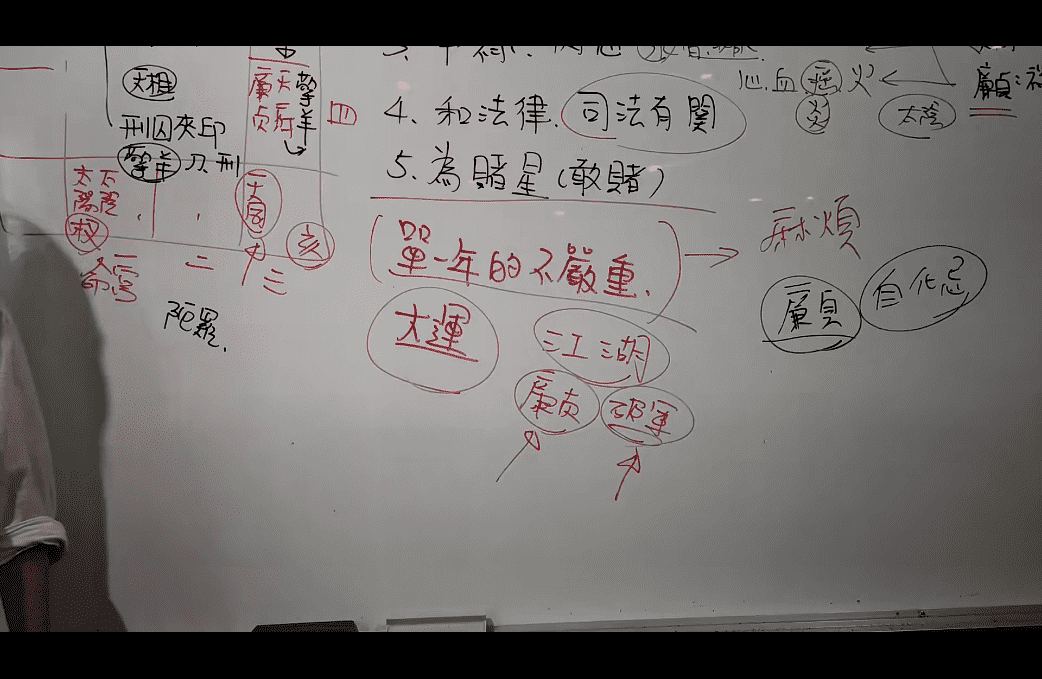 天相
廉貞
天府
擎羊
四
刑囚夾印
擎羊 刀.刑
太陽
太陰
权
命宮
二
三
亥
陀羅.
4. 和法律.司法有関
5. 為賭星(敢賭)
(單一年的不嚴重.) → 麻煩
大運
江湖
廉貞 破軍
心.血 火
炎 太陰
廉貞:
廉貞 自化忌